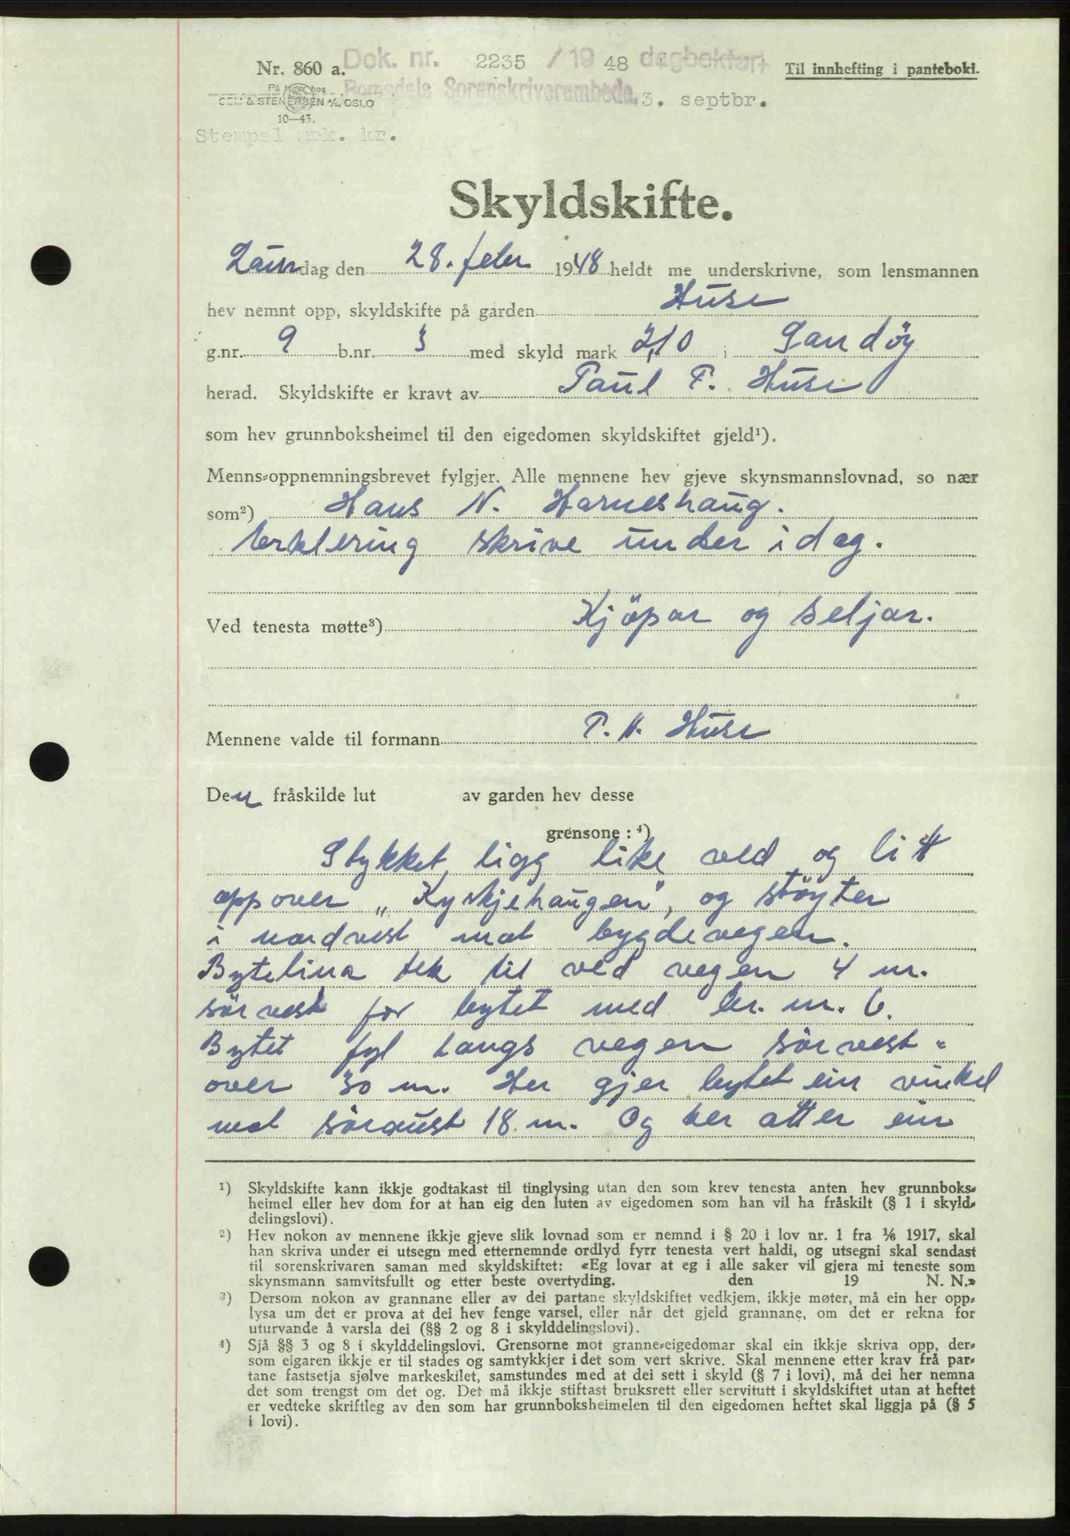 Dok. nr. 2235 / 19 48 dagbokført
Nr. 860 a.
Til innhefting i pantebok.
På lager hos
SEM & STENERSEN A/S, OSLO
Romsdals Sorenskriverembede, 3. septbr.
10—43.
Stempel mrk. kr.
Skyldskifte.
Laurdag den 28. febr 1948 heldt me underskrivne, som lensmannen
hev nemnt opp, skyldskifte på garden Huse
g.nr. 9 b.nr. 3 med skyld mark 2,10 i Sandöy
herad. Skyldskifte er kravt av Paul P. Huse
som hev grunnboksheimel til den eigedomen skyldskiftet gjeld¹).
Menns-oppnemningsbrevet fylgjer. Alle mennene hev gjeve skynsmannslovnad, so nær
som²) Hans N. Harneshaug.
Erklering skrive under i dag.
Ved tenesta møtte³) Kjöpar og seljar.
Mennene valde til formann P. N. Huse
Den fråskilde lut av garden hev desse
grensone: ⁴)
Stykket ligg like ved og litt
oppover „Kyrkjehaugen", og stöyter
i nordvest mot bygdevegen.
Bytelina tek til ved vegen 4 m.
sörvest for bytet med br. nr. 6.
Bytet fyl langs vegen sörvest-
over 30 m. Her gjer bytet ein vinkel
mot söraust 18 m. Og her atter ein
¹) Skyldskifte kann ikkje godtakast til tinglysing utan den som krev tenesta anten hev grunnboks-
heimel eller hev dom for at han eig den luten av eigedomen som han vil ha fråskilt (§ 1 i skyld-
delingslovi).
²) Hev nokon av mennene ikkje gjeve slik lovnad som er nemnd i § 20 i lov nr. 1 fra 1/6 1917, skal
han skriva under ei utsegn med etternemnde ordlyd fyrr tenesta vert haldi, og utsegni skal sendast
til sorenskrivaren saman med skyldskiftet: «Eg lovar at eg i alle saker vil gjera mi teneste som
skynsmann samvitsfullt og etter beste overtyding. den 19 N. N.»
³) Dersom nokon av grannane eller av dei partane skyldskiftet vedkjem, ikkje møter, må ein her opp-
lysa um det er prova at dei hev fenge varsel, eller når det gjeld grannane, om det er rekna for
uturvande å varsla dei (§§ 2 og 8 i skylddelingslovi).
⁴) Sjå §§ 3 og 8 i skylddelingslovi. Grensorne mot granne-eigedomar skal ein ikkje skriva opp, der-
som eigaren ikkje er til stades og samtykkjer i det som vert skrive. Skal mennene etter krav frå par-
tane fastsetja sjølve markeskilet, samstundes med at dei sett i skyld (§ 7 i lovi), må dei her nemna
det som trengst om det og. Det må ikkje stiftast bruksrett eller servitutt i skyldskiftet utan at heftet
er vedteke skriftleg av den som har grunnboksheimelen til den eigedomen heftet skal liggja på (§ 5
i lovi).